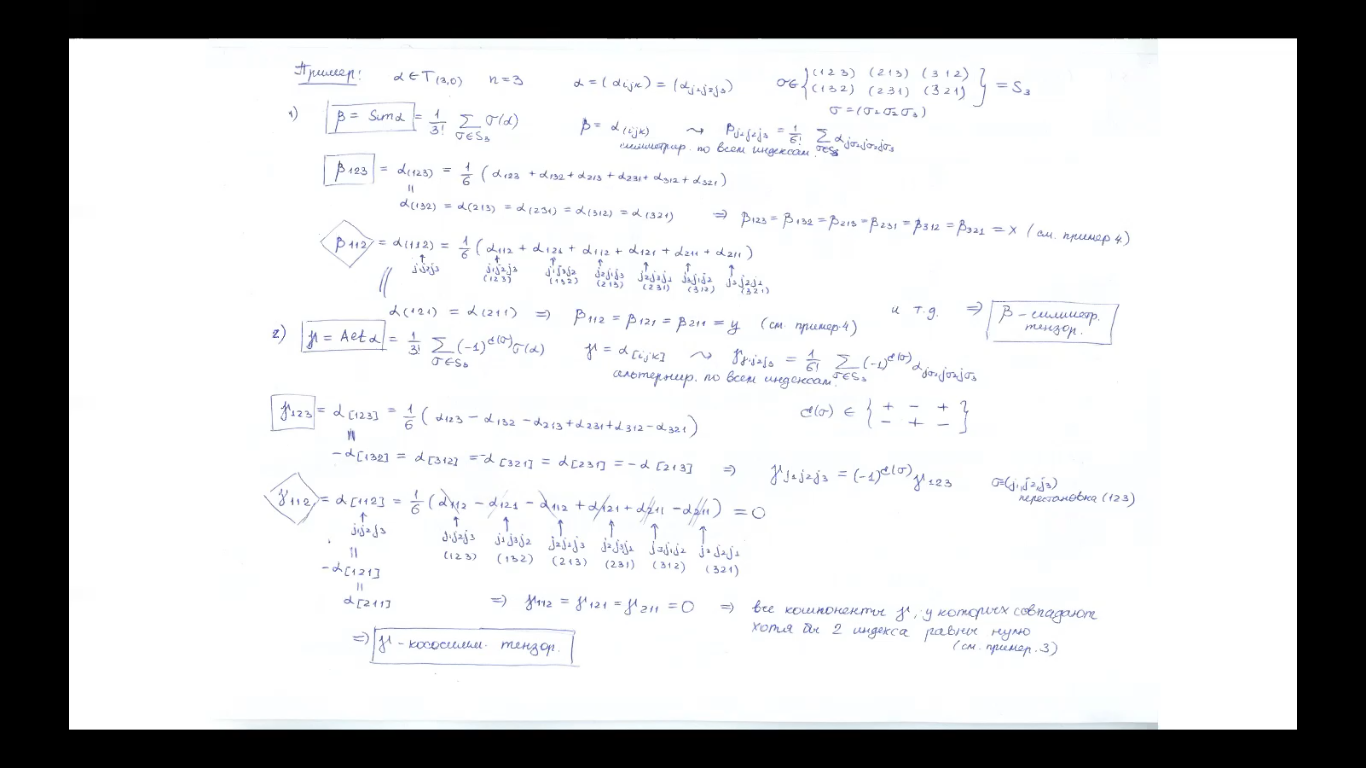 Пример: α ∈ T(3,0) n=3 α = (αijk) = (αj1j2j3) σ∈{(123) (213) (312) (132) (231) (321)} = S3
σ = (σ1σ2σ3)
1) β = Sim α = 1/3! Σσ∈S3 σ(α) β = α(ijk) ⇝ βj1j2j3 = 1/6! Σσ∈S3 αjσ1jσ2jσ3
симметрир. по всем индексам
β123 = α(123) = 1/6 (α123 + α132 + α213 + α231 + α312 + α321)
||
α(132) = α(213) = α(231) = α(312) = α(321) ⇒ β123 = β132 = β213 = β231 = β312 = β321 = x (см. пример 4)
β112 = α(112) = 1/6 (α112 + α121 + α112 + α121 + α211 + α211)
↑ ↑ ↑ ↑ ↑ ↑ ↑
j1j2j3 j1j2j3 j1j3j2 j2j1j3 j2j3j1 j3j1j2 j3j2j1
(123) (132) (213) (231) (312) (321)
||
α(121) = α(211) ⇒ β112 = β121 = β211 = y (см. пример 4) и т.д. ⇒ β – симметр. тензор.
2) γ = Alt α = 1/3! Σσ∈S3 (-1)^σ(σ) σ(α) γ = α[ijk] ⇝ γj1j2j3 = 1/6! Σσ∈S3 (-1)^σ(σ) αjσ1jσ2jσ3
альтернир. по всем индексам
γ123 = α[123] = 1/6 (α123 − α132 − α213 + α231 + α312 − α321) (σ) ∈ {+ − + − + −}
||
−α[132] = α[312] = −α[321] = α[231] = −α[213] ⇒ γj1j2j3 = (-1)^(σ) γ123 σ=(j1,j2,j3)
перестановка (123)
γ112 = α[112] = 1/6 (α112 − α121 − α112 + α121 + α211 − α211) = 0
↑ ↑ ↑ ↑ ↑ ↑ ↑
j1j2j3 j1j2j3 j1j3j2 j2j1j3 j2j3j1 j3j1j2 j3j2j1
(123) (132) (213) (231) (312) (321)
||
−α[121]
||
α[211] ⇒ γ112 = γ121 = γ211 = 0 ⇒ все компоненты γ, у которых совпадают
хотя бы 2 индекса равны нулю
(см. пример 3)
⇒ γ – кососимм. тензор.